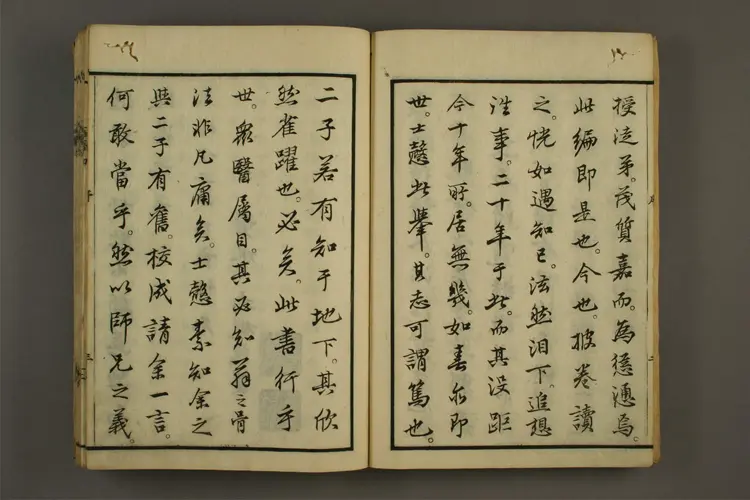 授徒弟。茂質嘉而。為慫慂焉。
此編即是也。今也。披卷讀
之。恍如遇知己。泫然泪下。追想
往事。二十年于此。而其没距
今十年所。居無幾。如春亦即
世。士愨此擧。其志可謂篤也。
二子若有知于地下。其欣
然雀躍也。必矣。此書行乎
世。衆醫属目。其必知翁之骨
法非凡庸矣。士愨素知余之
與二子有舊。校成請余一言。
何敢當乎。然以師兄之義。